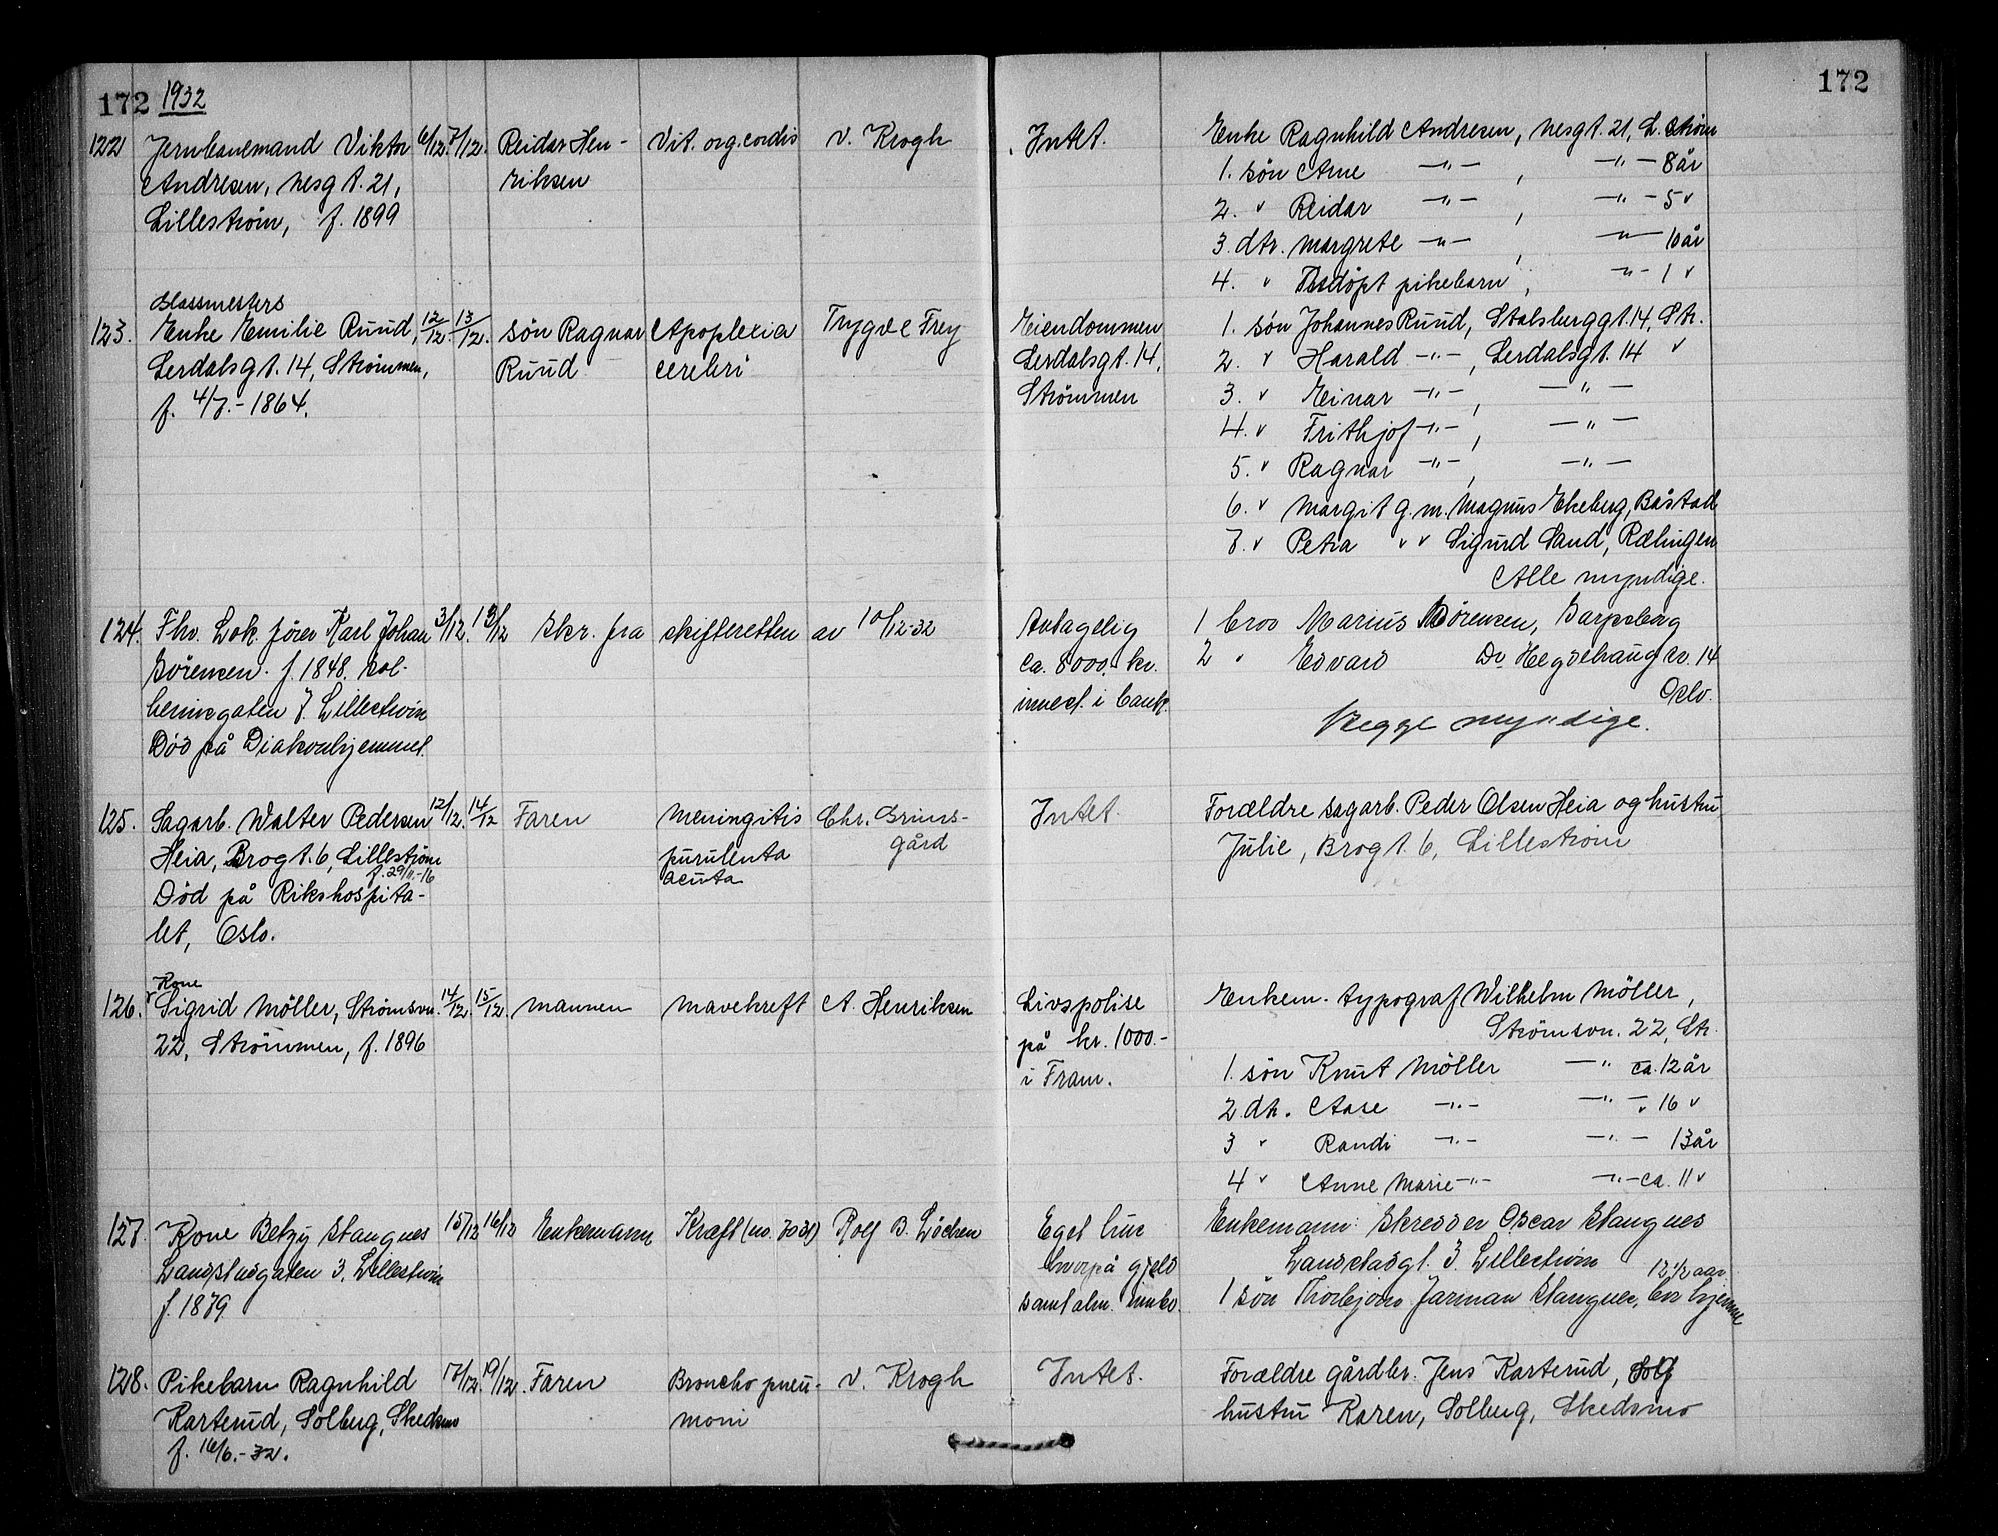 172 1932
172
122 Jernbanemand Viktor 6/12. 7/12. Reidar Hen- Vit. org. cordis v. Krogh Intet. Enke Ragnhild Andresen, Nesgt. 21, L.strøm
Andresen, Nesgt. 21, riksen 1. søn Arne —"— , —"— 8 år
Lillestrøm, f. 1899 2. " Reidar —"— , —"— 5 "
3. dtr. Margrete —"— , —"— 10 år
4. " Udøpt pikebarn , —"— 1 "
Glassmesters
123. Enke Emilie Ruud, 12/12. 13/12. Søn Ragnar Apoplexia Trygve Frey Eiendommen 1. søn Johannes Ruud, Stalsberggt. 14, Str.
Lerdalsgt. 14, Strømmen, Ruud cerebri Lerdalsgt. 14, 2. " Harald —"—, Lerdalsgt. 14 "
f. 4/7.-1864. Strømmen 3. " Einar —"— , —"—
4. " Frithjof —"— , —"—
5. " Ragnar —"— , —"—
6. " Margit g.m. Magnus Ekeberg, Båstad
7. " Petra " " Sigurd Sand, Rælingen
Alle myndige.
124. Fhv. Lok. fører Karl Johan 3/12. 13/12 Skr. fra skifteretten av 10/12-32 Antagelig 1 bror Marius Sørensen, Sarpsborg
Sørensen. f. 1848. Sol- ca. 8000,- kr. 2 " Edvard Do Hegdehaugsv. 14
heimsgaten 7. Lillestrøm innest. i bank. Oslo.
Død på Diakonhjemmet. Begge myndige.
125. Sagarb. Walter Pedersen 12/12. 14/12 Faren Meningitis Chr. Grims- Intet. Forældre sagarb. Peder Olsen Heia og hustru
Heia, Brogt. 6, Lillestrøm purulenta gård Julie, Brogt. 6, Lillestrøm
f. 29/11.-16 acuta
Død på Rikshospita-
let, Oslo.
Kone
126. Sigrid Möller, Strømsvn. 14/12. 15/12. Mannen Mavekreft A. Henriksen Livspolise Enkem. typograf Wilhelm Möller,
22, Strømmen, f. 1896 på kr. 1000.- Strømsvn. 22, Str.
i Fram. 1. søn Knut Möller —"— ca. 12 år
2 dtr. Aase —"— —"— " 16 "
3 " Randi —"— —"— 13 år
4 " Anne Marie —"— —"— ca. 11 "
127. Kone Betzy Stangnes 15/12 16/12 Enkemann Kræft Rolf B. Løchen Eget hus Enkemann: Skredder Oscar Stangnes
Landstadgaten 3. Lillestrøm hvorpå gjeld Landstadgt. 3. Lillestrøm 12 1/2 aar.
f. 1879 samt alm. innbo. 1 søn Thorbjørn Jarman Stangnes, bor hjemme
128. Pikebarn Ragnhild 17/12. 19/12. Faren Broncho pneu- v. Krogh Intet. Forældre gårdbr. Jens Karterud, og
Karterud, Solberg, Skedsmo moni hustru Karen, Solberg, Skedsmo
f. 16/6.-32.